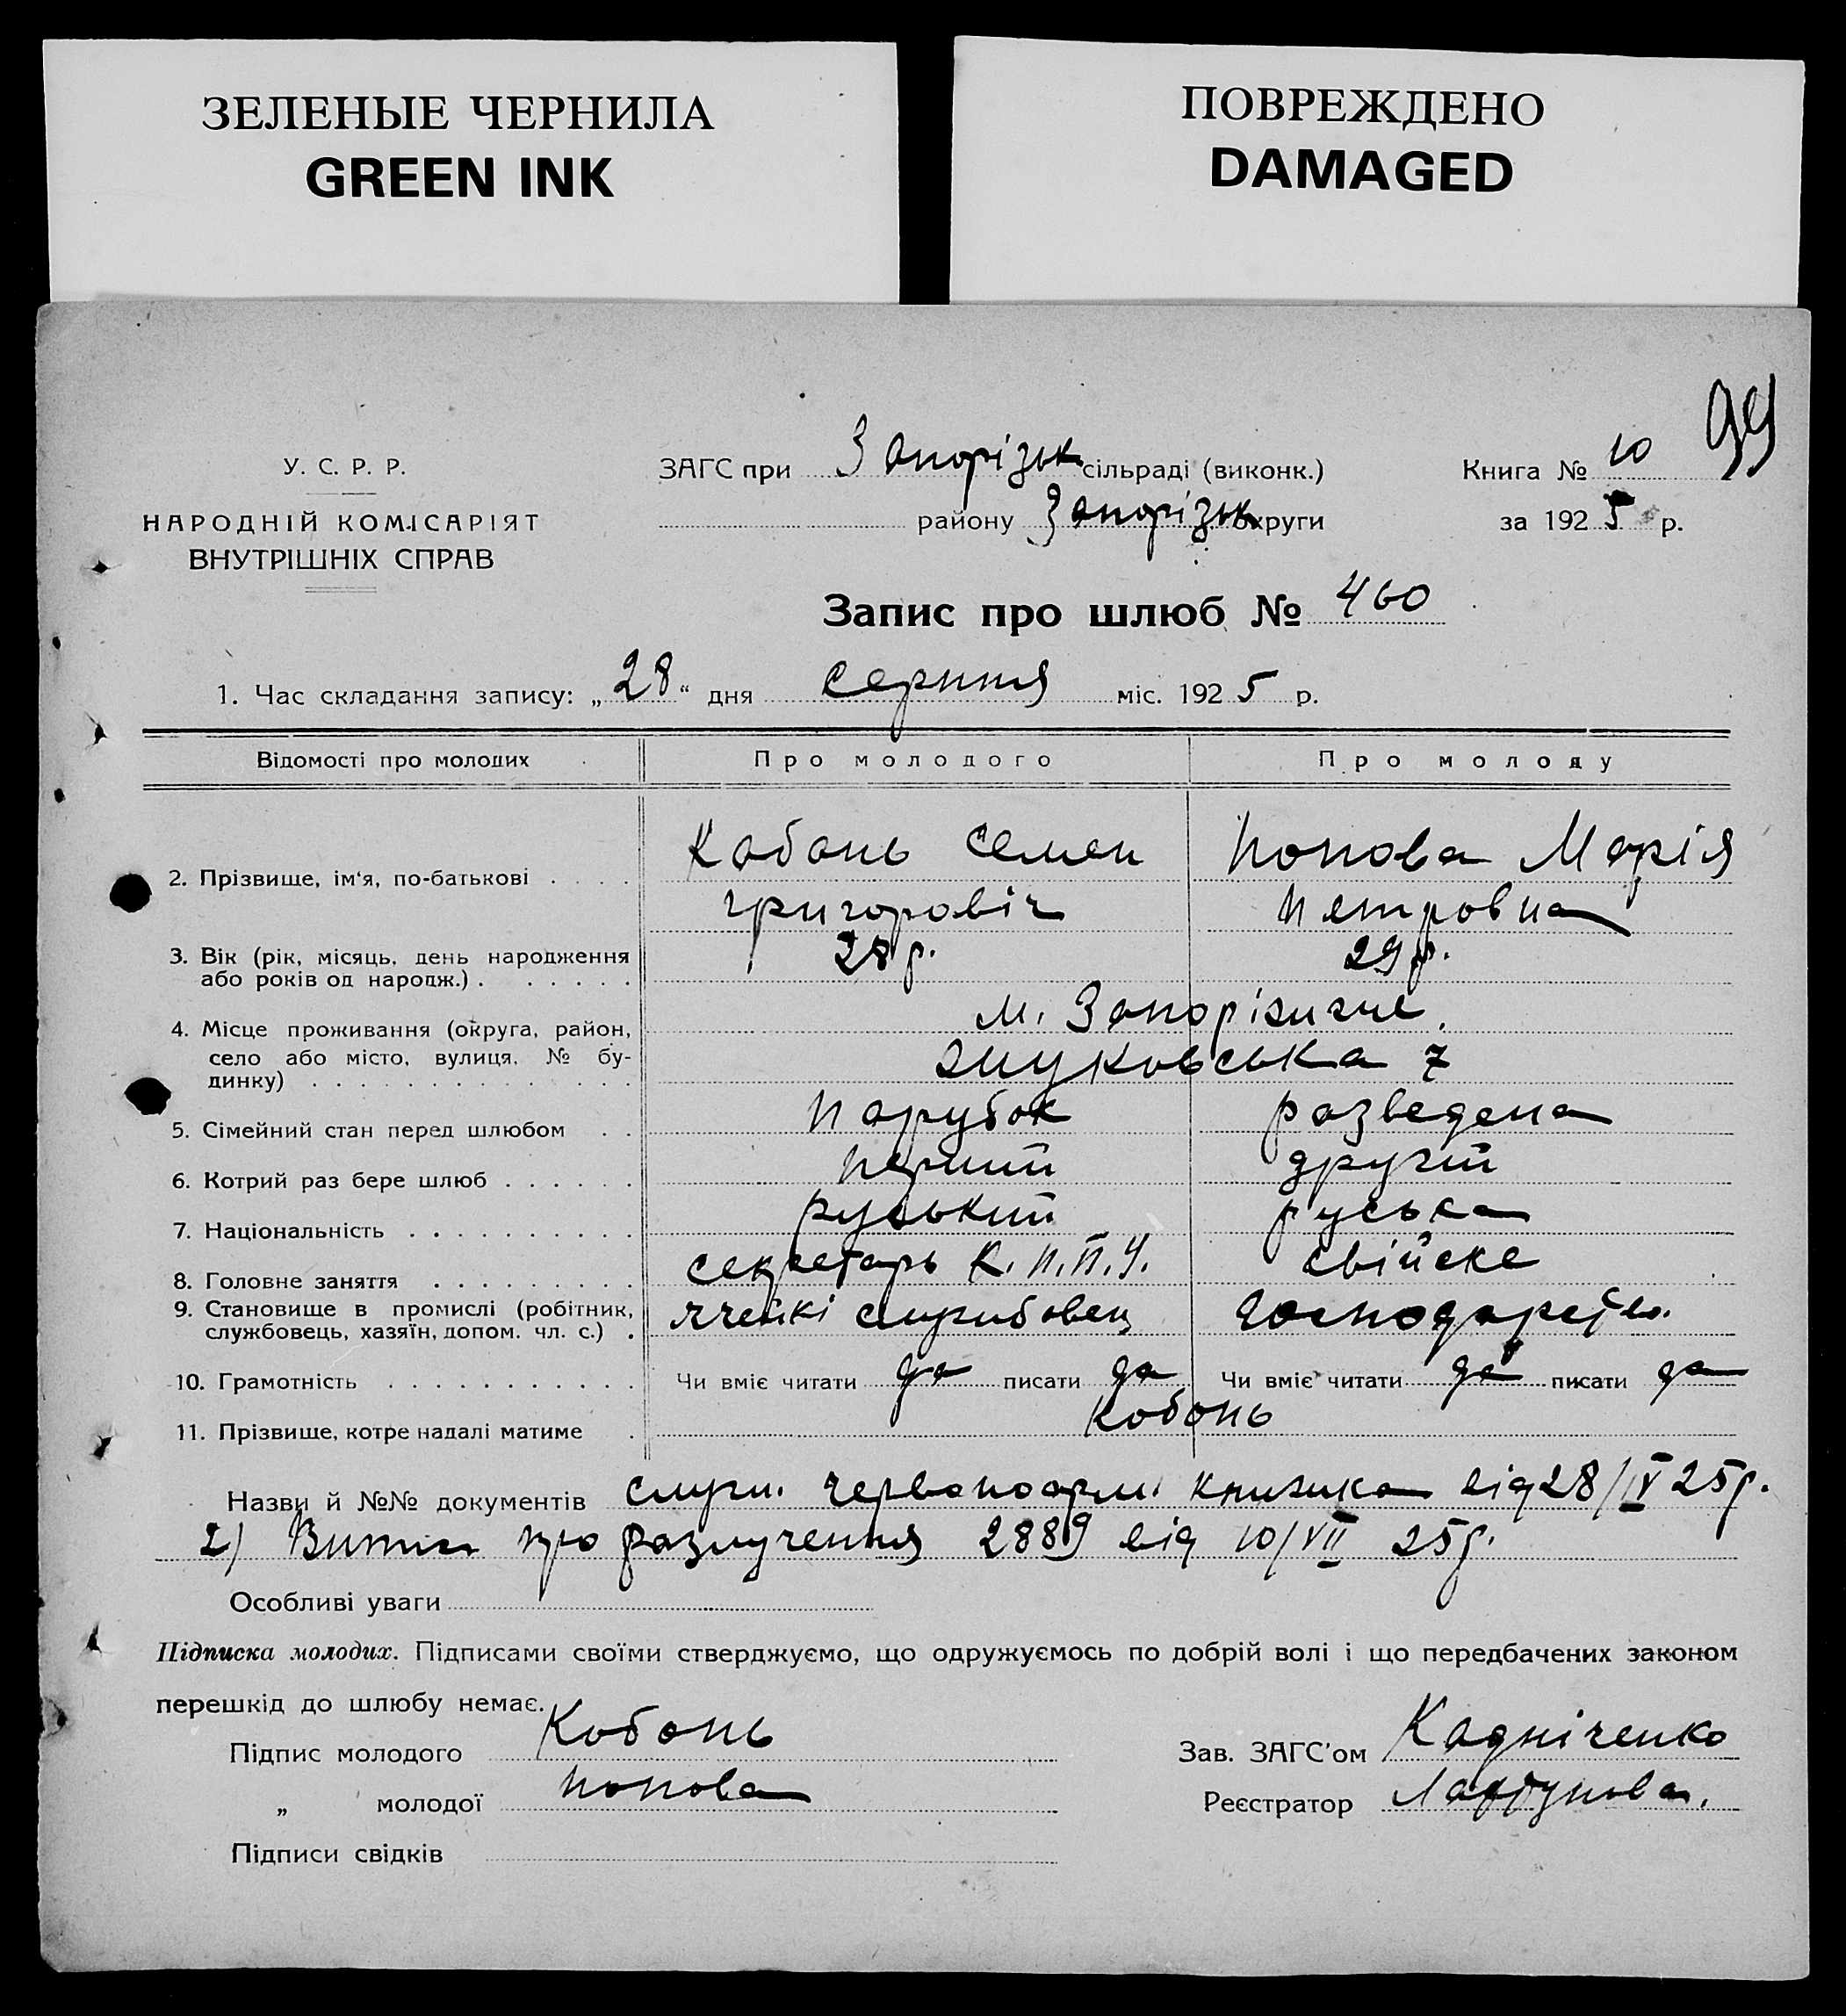 ЗЕЛЕНЫЕ ЧЕРНИЛА
GREEN INK
ПОВРЕЖДЕНО
DAMAGED
99
У. С. Р. Р.
НАРОДНІЙ КОМІСАРІЯТ
ВНУТРІШНІХ СПРАВ
ЗАГС при Запорізьк сільраді (виконк.)
району Запорізьк округи
Книга № 10
за 1925 р.
Запис про шлюб № 460
1. Час складання запису: „28“ дня серпня міс. 1925 р.
Відомості про молодих Про молодого Про молоду
2. Прізвище, ім'я, по-батькові . . . . Кабань Семен Попова Марія
григоровіч Петровна
3. Вік (рік, місяць, день народження 28 р. 29 р.
або років од народж.) . . . . . .
4. Місце проживання (округа, район, м. Запоріжжє.
село або місто, вулиця, № бу- Жуковська 7
динку) . . . . . . . . . . . . . .
5. Сімейний стан перед шлюбом . . Парубок разведена
6. Котрий раз бере шлюб . . . . . . перший другий
7. Національність . . . . . . . . . . руський руська
8. Головне заняття . . . . . . . . . секретарь К.П.П.У. свійске
9. Становище в промислі (робітник, ячейкі службовец господарство.
службовець, хазяїн, допом. чл. с.) .
10. Грамотність . . . . . . . . . . . Чи вміє читати да писати да Чи вміє читати да писати да
11. Прізвище, котре надалі матиме . Кабань
Назви й №№ документів служ. червоноарм. книжка від 28/IV 25р.
2) Витяг про разлучення 2889 від 10/VII 25р.
Особливі уваги
Підписка молодих. Підписами своїми стверджуємо, що одружуємось по добрій волі і що передбачених законом
перешкід до шлюбу немає.
Підпис молодого Кобань
„ молодої Попова
Підписи свідків
Зав. ЗАГС'ом Кадніченко
Реєстратор